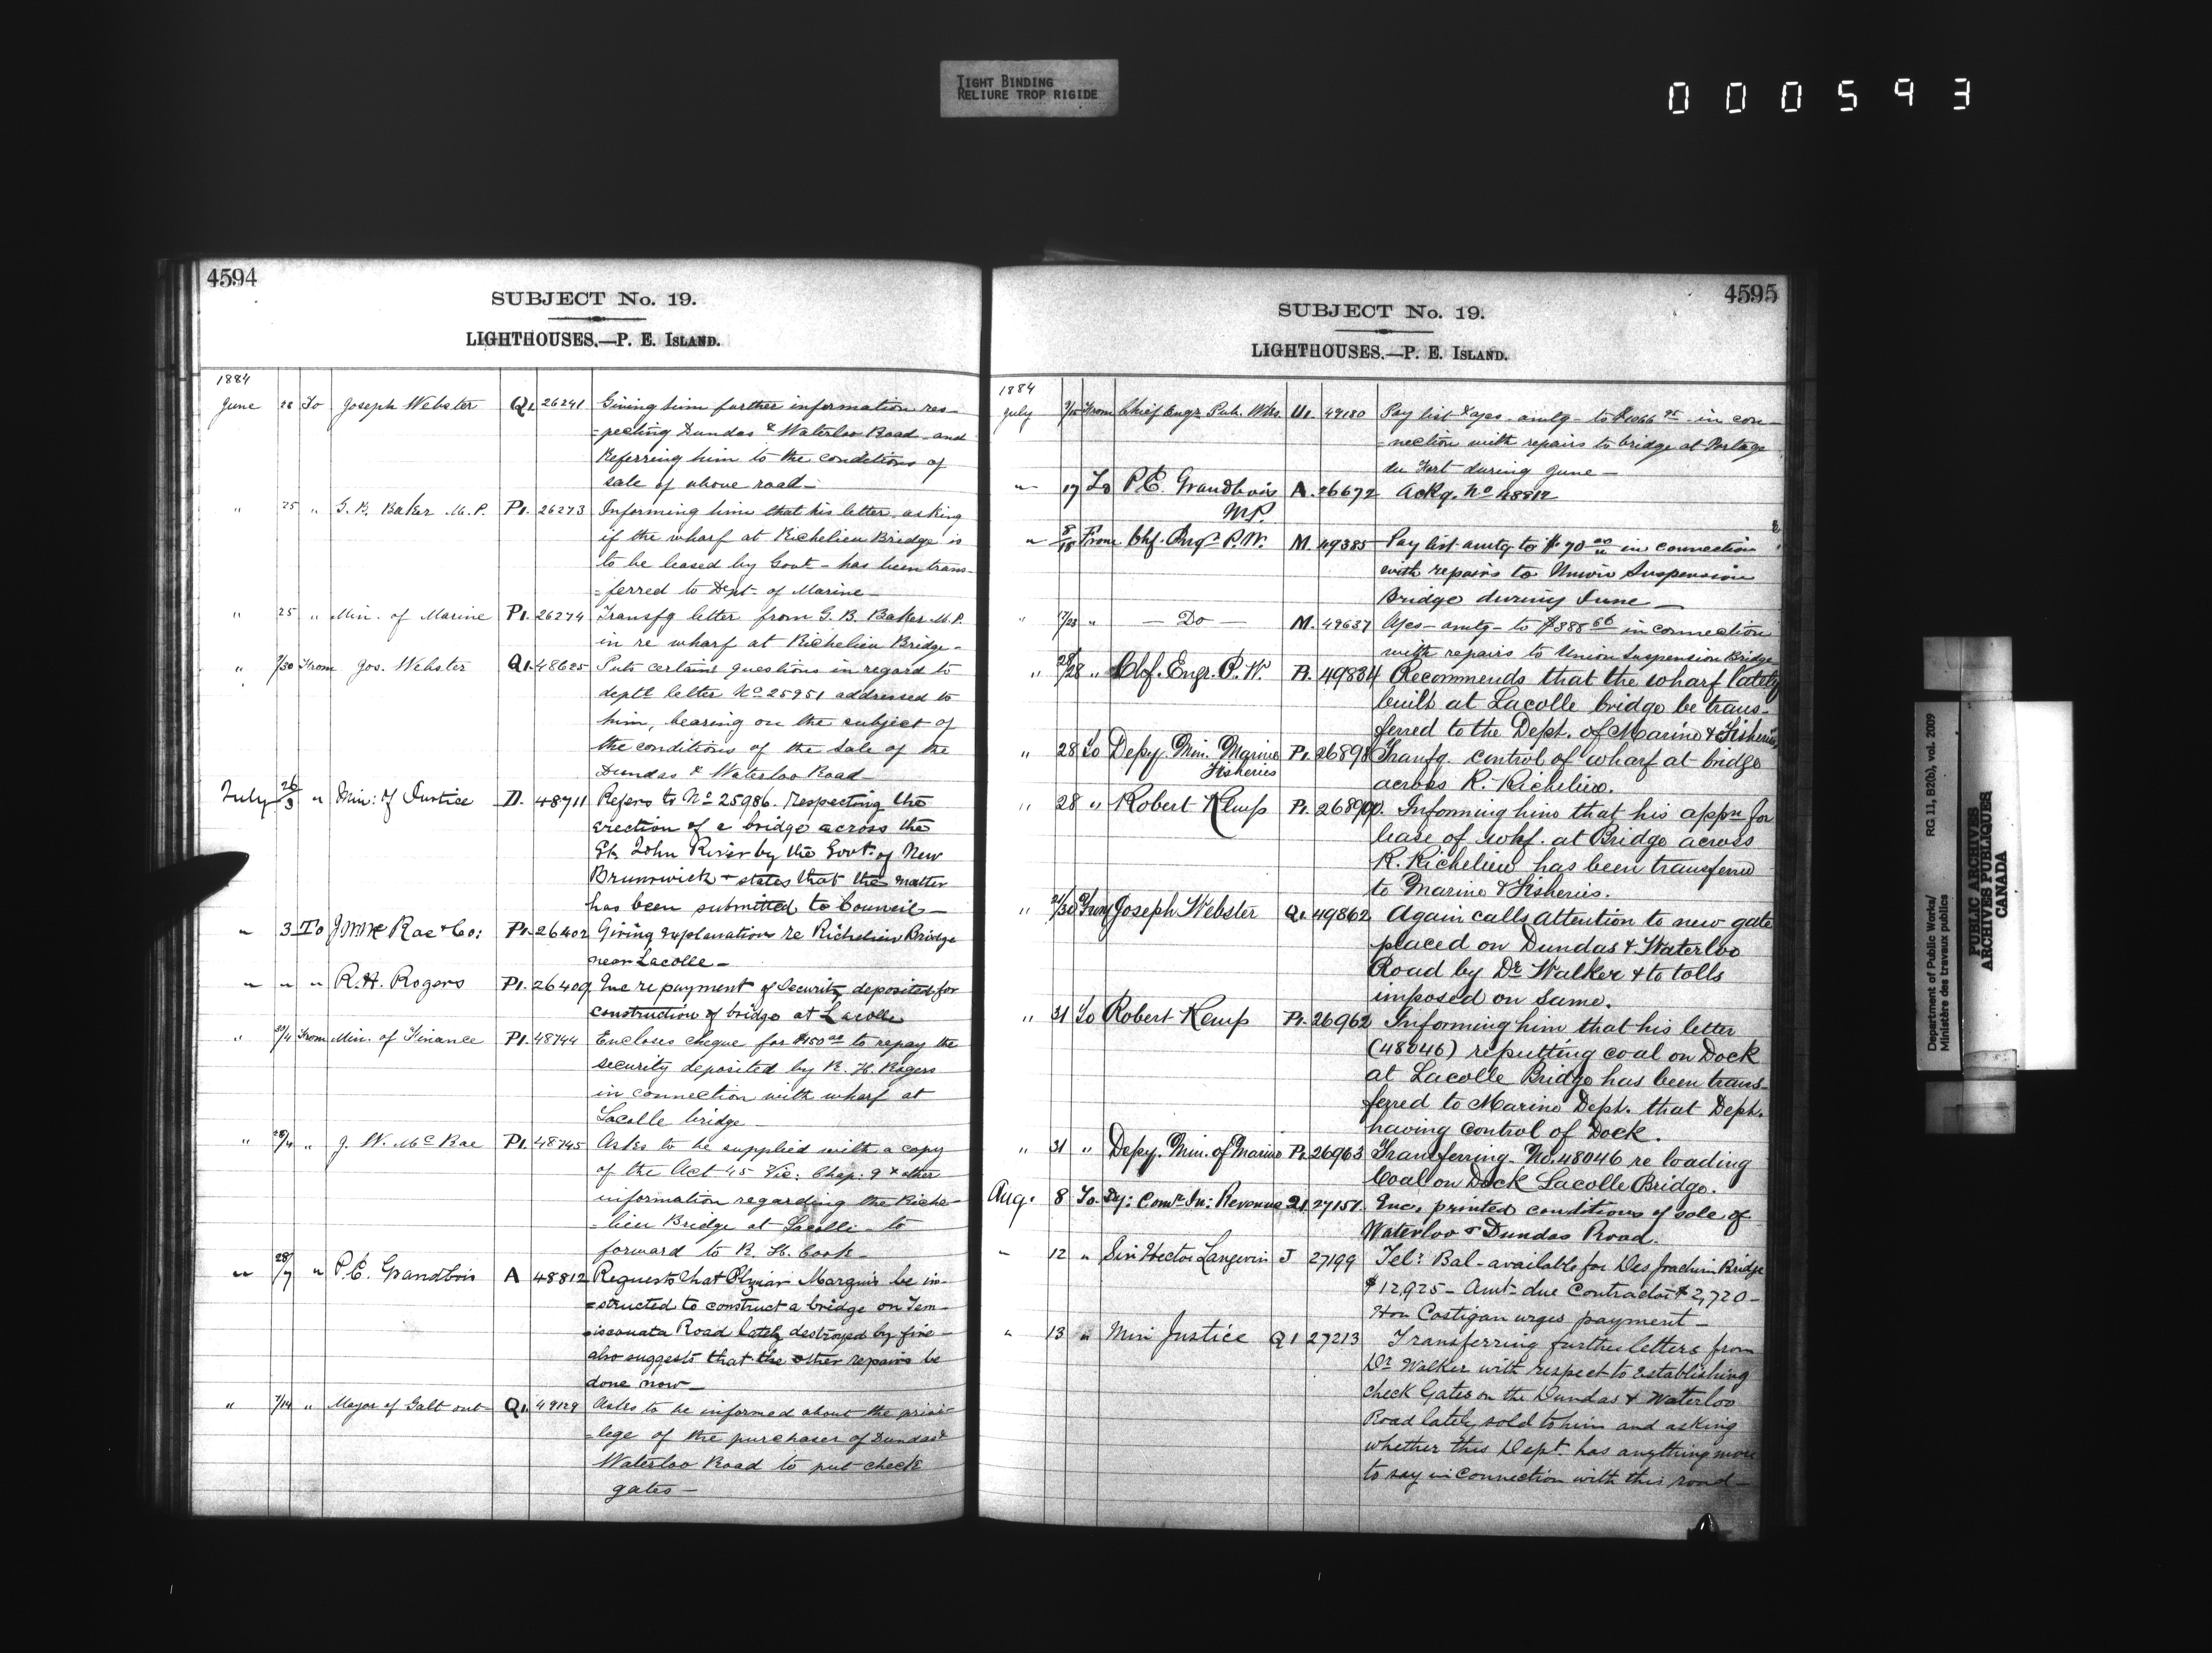 TIGHT BINDING
RELIURE TROP RIGIDE
000593
4594
SUBJECT No. 19.
LIGHTHOUSES.—P. E. ISLAND.
1884
June 28 To Joseph Webster Q1. 26241 Giving him further information res-
=pecting Dundas & Waterloo Road and
Referring him to the conditions of
sale of above road—
" 25 " G. B. Baker M.P. P1. 26273 Informing him that his letter asking
if the wharf at Richelieu Bridge is
to be leased by Govt - has been trans-
=ferred to Dept of Marine—
" 25 " Min. of Marine P1. 26274 Transfg letter from G. B. Baker M.P.
in re wharf at Richelieu Bridge-
" /30 From Jos. Webster Q1. 48625 Puts certain questions in regard to
deptl letter No 25951 addressed to
him, bearing on the subject of
the conditions of the Sale of the
Dundas & Waterloo Road
July 26/3 " Min: of Justice D. 48711 Refers to No 25986. respecting the
erection of a bridge across the
St John River by the Govt. of New
Brunswick & states that the matter
has been submitted to Council—
" 3 To J McRae & Co: P1. 26402 Giving explanations re Richelieu Bridge
near Lacolle—
" " " R. H. Rogers P1. 26409 Enc repayment of Security deposited for
construction of bridge at Lacolle
" /4 From Min. of Finance P1. 48744 Encloses cheque for $150 00 to repay the
security deposited by R. H. Rogers
in connection with wharf at
Lacolle bridge
" /4 " J. W. McRae P1. 48745 Asks to be supplied with a copy
of the Act 45 Vic. Chap. 9 & other
information regarding the Riche-
=lieu Bridge at Lacolle - to
forward to R. H. Cook-
" 28/7 " P. E. Grandbois A 48812 Requests that Marquis be in-
=structed to construct a bridge on Tem-
=iscouata Road lately destroyed by fire-
also suggests that the other repairs be
done now—
" 7/14 " Mayor of Galt ont Q1. 49129 Asks to be informed about the privi-
=lege of the purchaser of Dundas &
Waterloo Road to put check
gates—
4595
SUBJECT No. 19.
LIGHTHOUSES.—P. E. ISLAND.
1884
July /15 From Chief Engr. Pub. Wks. U1. 49180 Pay list & ages. amtg- to $1066 95 in con-
=nection with repairs to bridge at Portage
du Fort during June—
" 17 To P. E. Grandbois A. 26672 Ackg. No 48812
M.P.
" 8/18 From Chf. Engr P.W. M. 49385 Pay list amtg to $ 70 in connection
with repairs to Union Suspension
Bridge during June—
" 17/23 " — Do — M. 49637 A/cs - amtg - to $388 66 in connection
with repairs to Union Suspension Bridge
" 28 " Chf. Engr. P. W. P1. 49834 Recommends that the wharf lately
built at Lacolle bridge be trans-
ferred to the Dept. of Marine & Fisheries
" 28 To Depy. Min. Marine P1. 26898 Transfg. control of wharf at bridge
Fisheries
across R. Richelieu.
" 28 " Robert Kemp P1. 26899. Informing him that his appn for
lease of whf. at Bridge across
R. Richelieu has been transferred
to Marine & Fisheries.
" /30 From Joseph Webster Q1. 49862 Again calls attention to new gate
placed on Dundas & Waterloo
Road by Dr. Walker & to tolls
imposed on same.
" 31 To Robert Kemp P1. 26962 Informing him that his letter
(48046) re putting coal on Dock
at Lacolle Bridge has been trans-
ferred to Marine Dept. that Dept.
having control of Dock.
" 31 " Depy. Min. of Marine P1. 26963 Transferring No. 48046 re loading
Coal on Dock Lacolle Bridge.
Aug. 8 To Dy: Comr In: Revenue Q1 27151. Enc. printed conditions of sale of
Waterloo & Dundas Road.
" 12 " Sir Hector Langevin J 27199 Tel: Bal- available for Des Joachim Bridge
$12,925- Amt due Contractor $2,720-
Hon Costigan urges payment—
" 13 " Min Justice Q1 27213 Transferring further letters from
Dr Walker with respect to establishing
check Gates on the Dundas & Waterloo
Road lately sold to him and asking
whether this Dept. has anything more
to say in connection with this road—
Department of Public Works/ RG 11, B2(b), vol. 2009
Ministère des travaux publics
PUBLIC ARCHIVES
ARCHIVES PUBLIQUES
CANADA